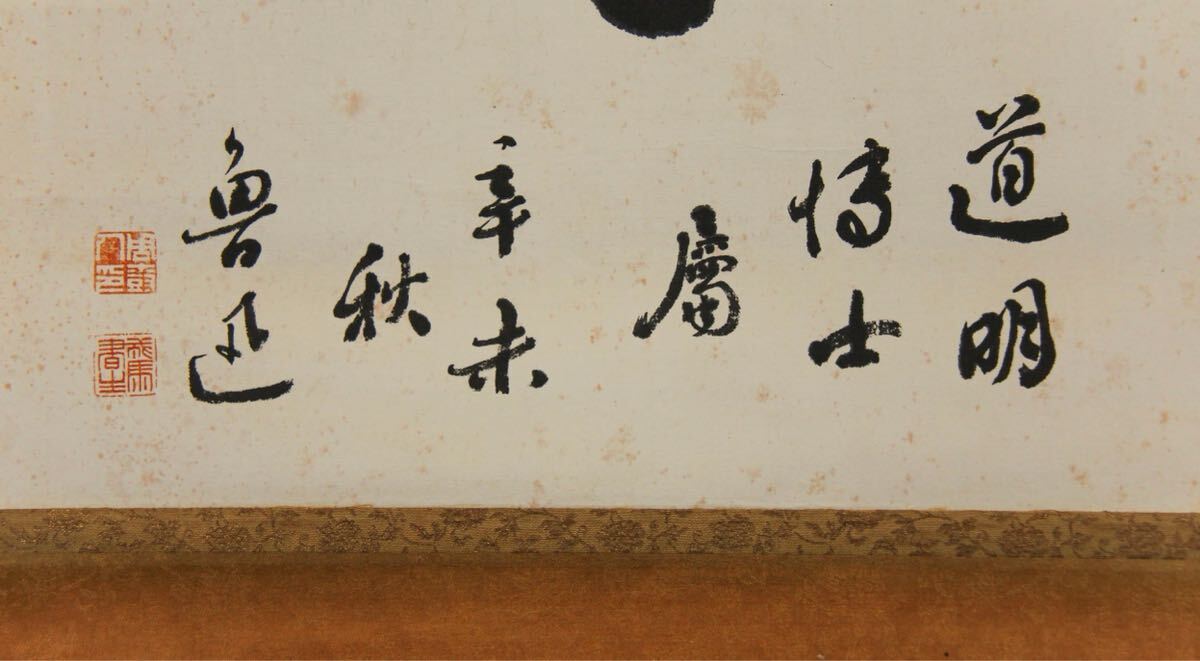 道明
博士
屬
辛未
秋
魯迅